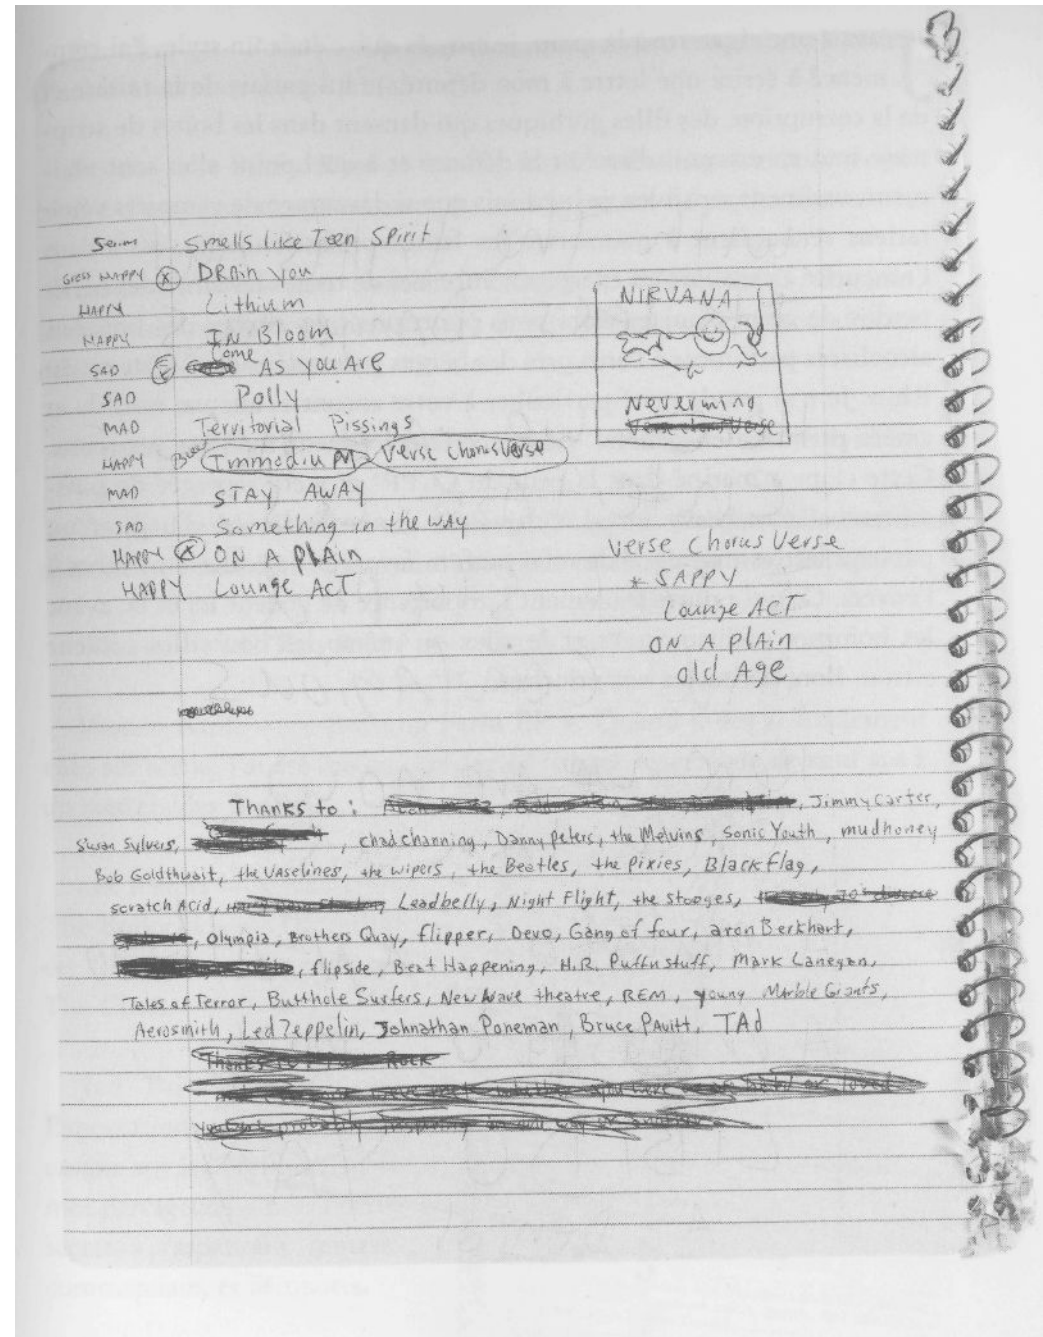 Smells like Teen Spirit
HAPPY DRAin you
HAPPY Lithium
HAPPY IN Bloom
SAD Come AS you ARe
SAD Polly
MAD Territorial Pissings
HAPPY Immodium Verse Chorus Verse
MAD STAY AWAY
SAD Something in the WAY
HAPPY ON A PlAin
HAPPY Lounge AcT
NIRVANA
Nevermind
Verse Chorus Verse
Verse Chorus Verse
* SAPPY
Lounge ACT
ON A plAin
old Age
THANKS to: Jimmy Carter,
Susan Sylvers, chad channing, Danny Peters, the Melvins, Sonic Youth, mudhoney
Bob Goldthwait, the VAselines, the wipers, the Beatles, the Pixies, Black flag,
scratch Acid, Leadbelly, Night Flight, the Stooges,
Olympia, Brothers Quay, flipper, Devo, Gang of four, aron Berkhart,
flipside, Beat Happening, H.R. Puffnstuff, Mark Lanegan,
Tales of Terror, Butthole Surfers, New Wave theatre, REM, young Marble Giants,
Aerosmith, Led Zeppelin, Johnathan Poneman, Bruce PAvitt, TAd
Rock